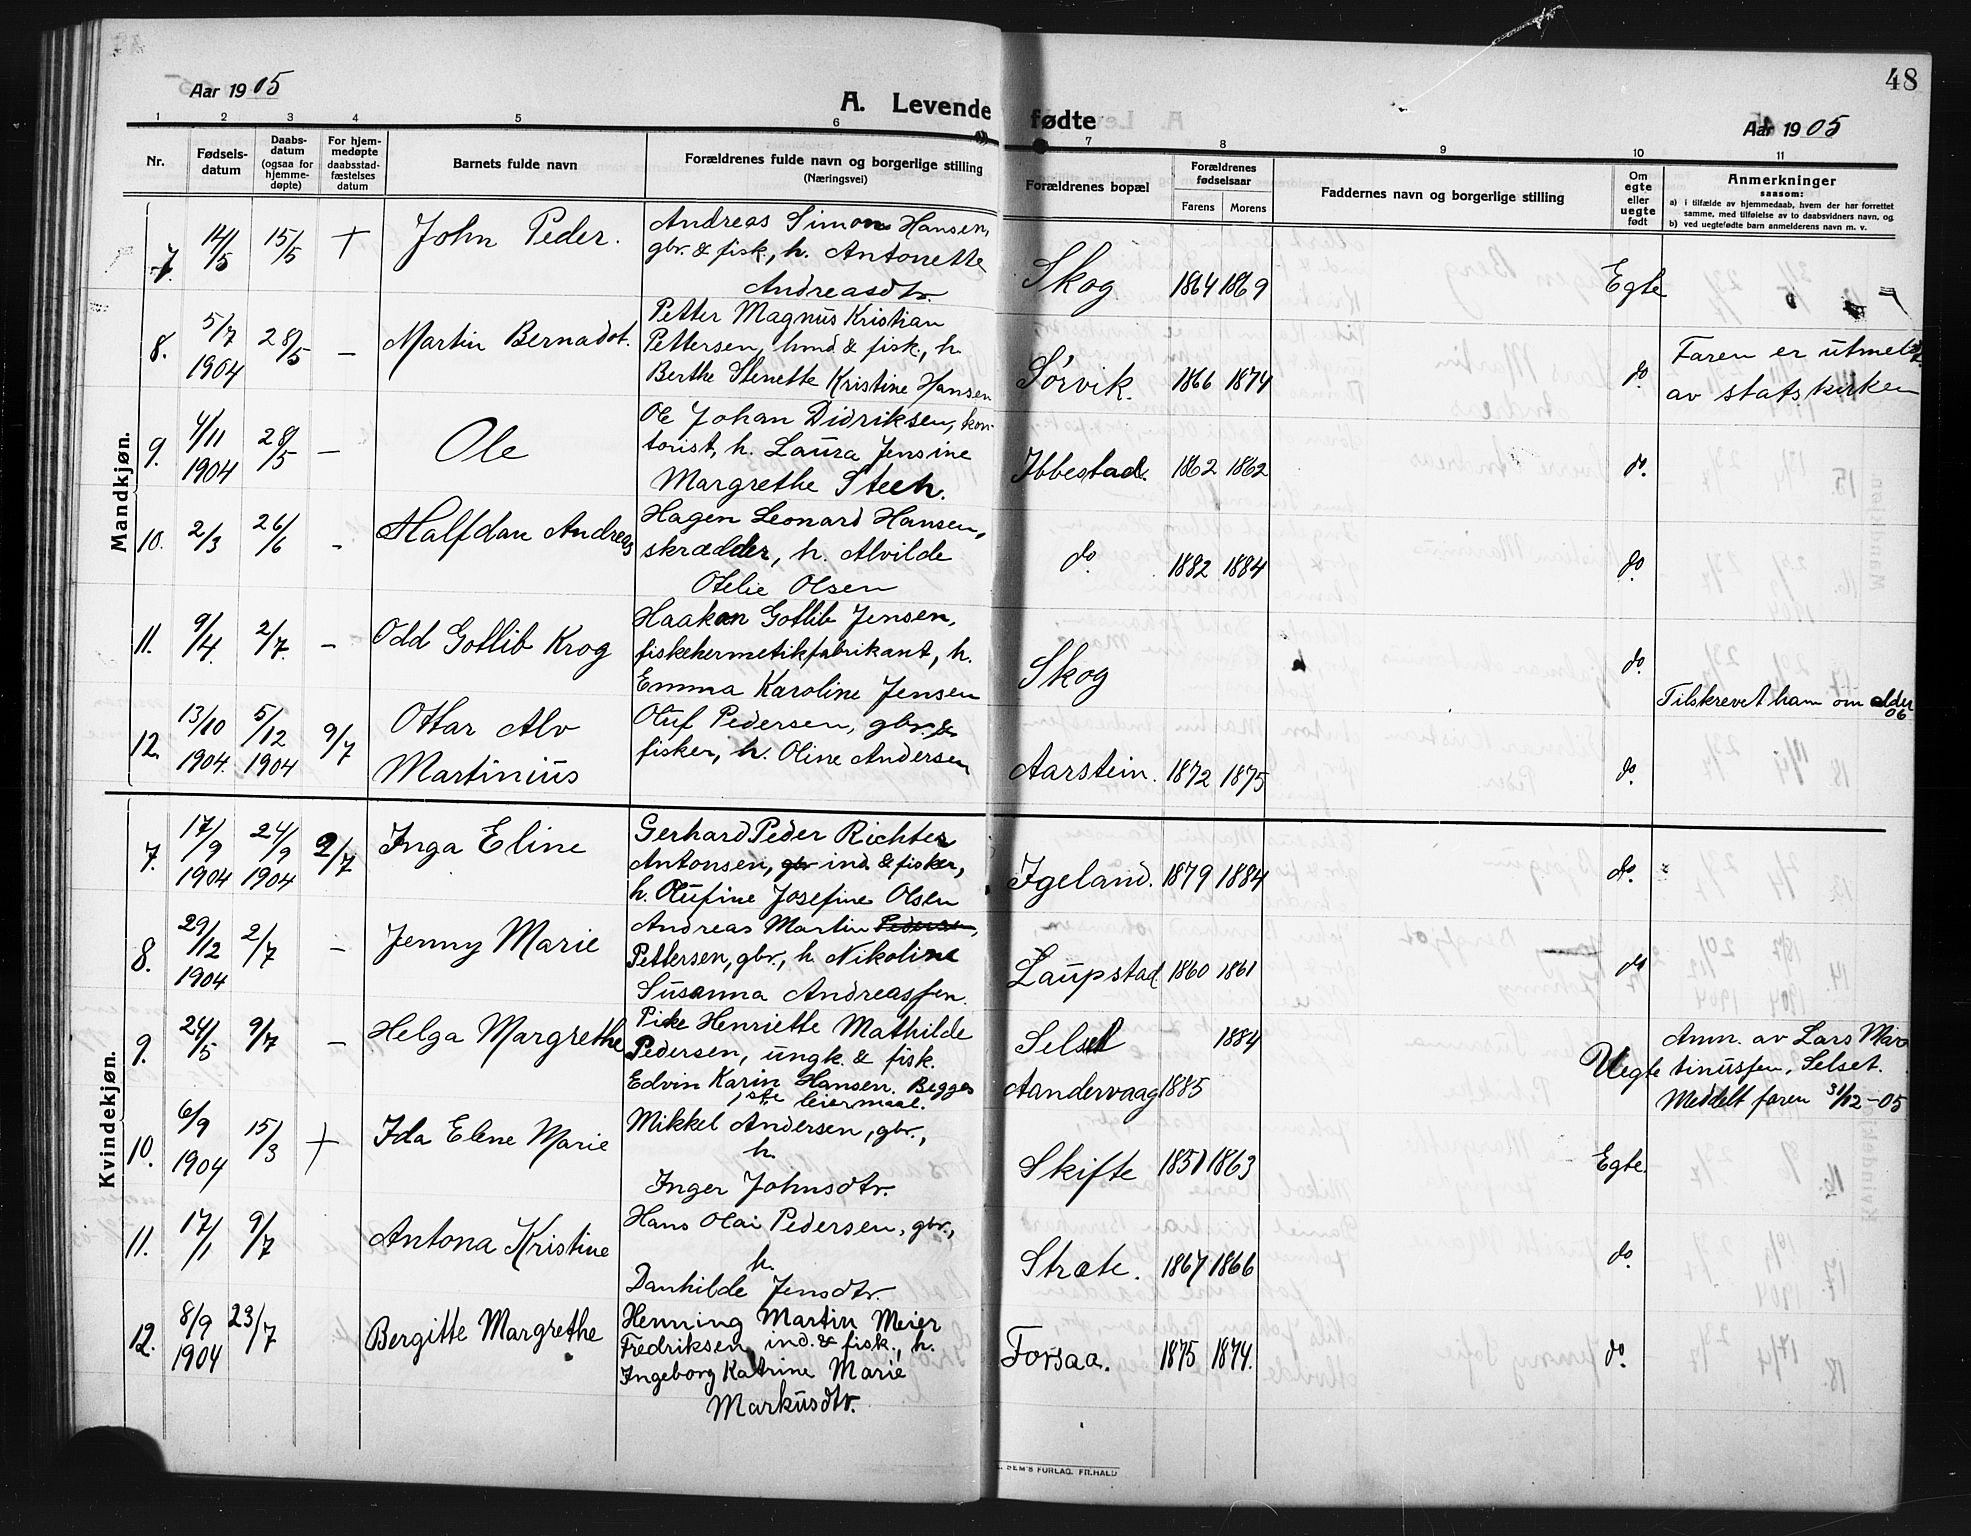 48
Aar 1905
A. Levende fødte
Aar 1905
1 2 3 4 5 6 7 8 9 10 11
Nr.
Fødsels-
datum
Daabs-
datum
(ogsaa for
hjemme-
døpte)
For hjem-
medøpte
daabsstad-
fæstelses
datum
Barnets fulde navn
Forældrenes fulde navn og borgerlige stilling
(Næringsvei)
Forældrenes bopæl
Forældrenes
fødselsaar
Farens Morens
Faddernes navn og borgerlige stilling
Om
egte
eller
uegte
født
Anmerkninger
saasom:
a) i tilfælde av hjemmedaab, hvem der har forrettet
samme, med tilføielse av to daabsvidners navn, og
b) ved uegtefødte barn anmelderens navn m. v.
Mandkjøn.
7. 14/5 15/5 + John Peder.
Andreas Simon Hansen,
gbr. & fisk., h. Antonette
Andreasdtr.
Skog 1864 1869 Egte
8. 5/7 1904 28/5 – Martin Bernadot.
Petter Magnus Kristian
Pettersen, hmd. & fisk., h.
Berthe Stenette Kristine Hansen
Sørvik. 1866 1874 do.
Faren er utmeldt
av statskirken
9. 4/11 1904 28/5 – Ole
Ole Johan Didriksen, kon-
torist, h. Laura Jensine
Margrethe Steen.
Ibbestad. 1862 1862 do.
10. 2/3 26/6 - Halfdan Andreas
Hagen Leonard Hansen,
skrædder, h. Alvilde
Otelie Olsen
do. 1882 1884 do.
11. 9/4. 2/7. – Odd Gotlib Krog
Haakon Gotlib Jensen,
fiskehermetikfabrikant, h.
Emma Karoline Jensen
Skog do.
12. 13/10 1904. 5/12 1904 9/7 Ottar Alv
Martinius
Oluf Pedersen, gbr. &
fisker, h. Oline Andersen
Aarstein. 1872 1875 do.
Tilskrevet ham om alder
06
Kvindekjøn.
7. 17/9 1904 24/9 1904 2/7 Inga Eline
Gerhard Peder Richter
Antonsen, gbr ind. & fisker,
h. Olufine Josefine Olsen
Igeland. 1879 1884 do.
8. 29/12 1904 2/7 – Jenny Marie
Andreas Martin Pedersen,
Pettersen, gbr., h. Nikoline
Susanna Andreassen.
Laupstad 1860 1861 do
9. 24/5 9/7 – Helga Margrethe
Pike Henriette Mathilde
Pedersen, ungk. & fisk.
Edvin Karin Hansen. Begges
1ste leiermaal.
Selset 1884
Aandervaag 1885
Uegte
Anm. av Lars Mar-
tinussen, Selset.
Meddelt faren 31/12–05
10. 6/9 1904 15/3 + Ida Elene Marie
Mikkel Andersen, gbr.,
h.
Inger Johnsdtr.
Skifte 1851 1863 Egte.
11. 17/1 9/7 Antona Kristine
Hans Olai Pedersen, gbr.,
h.
Danhilde Jensdtr.
Stræte. 1867 1866 do.
12. 8/9 1904 23/7 Bergitte Margrethe
Henning Martin Meier
Fredriksen, ind. & fisk., h.
Ingeborg Katrine Marie
Markusdtr.
Forsaa. 1875 1874. do.
SEM'S FORLAG. FR.HALD